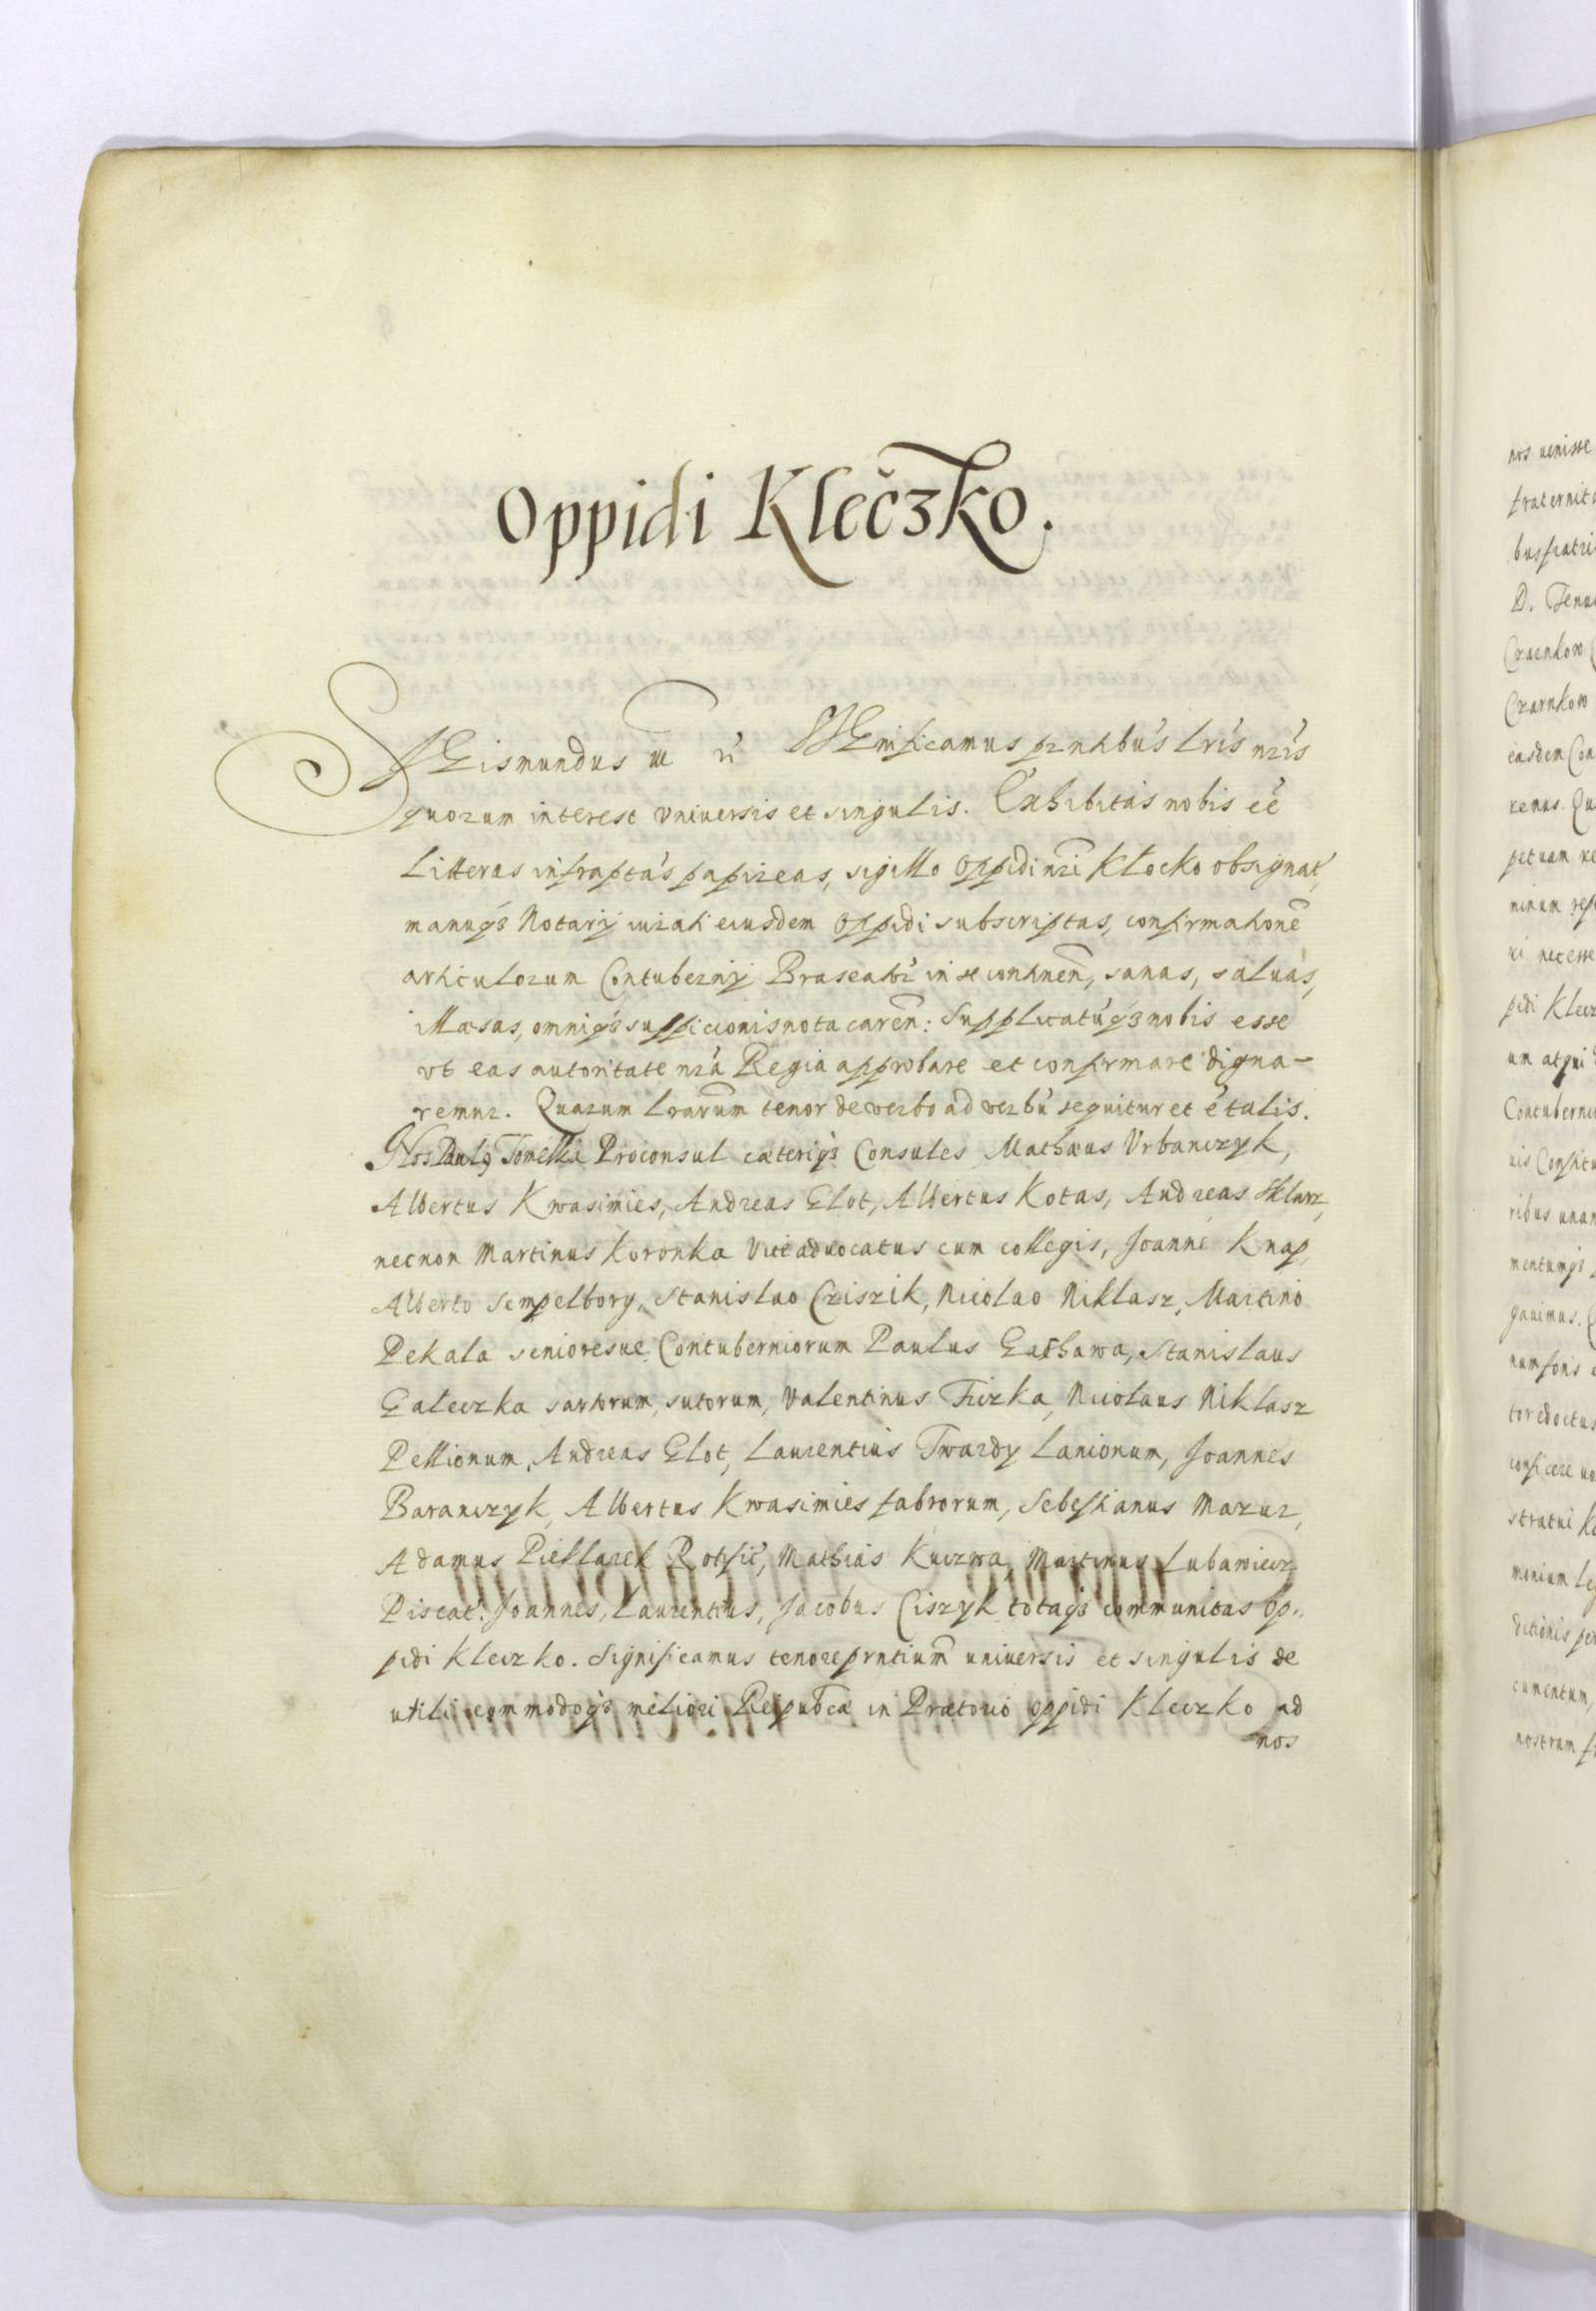 Oppidi Klečzko.
SIGismundus III etc̃ SIGnificamus pr̃ntibus lr̃is nr̃is
quorum interest vniuersis et singulis. Exhibitas nobis eẽ
Litteras infraptas papireas, sigillo oppidi nr̃i Klecko obsignat,
manuq₃ Notarij iurati eiusdem oppidi subscriptas, confirmationẽ
articulorum Contubernij Braseator in se continen̄, sanas, saluas,
illæsas, omniq₃ suspicionis nota caren̄: Supplicatuq₃ nobis esse
vt eas autoritate nr̃a Regia approbare et confirmare digna-
remur. Quarum lrarũm tenor de verbo ad verbũ sequitur et ẽ talis.
Nos Paulꝰ Tomelka Proconsul cæteriq₃ Consules Mathæus Vrbanczyk,
Albertus Kwasimies, Andreas Glot, Albertus Kotas, Andreas Sklarz,
necnon Martinus Koronka Viceaduocatus cum collegis, Joanne Knap,
Alberto Sempelbory, Stanislao Cziszik, Nicolao Niklasz, Martino
Pekala senioresue Contuberniorum Paulus Gathawa, Stanislaus
Galeczka sartorum, sutorum, Valentinus Ficzka, Nicolaus Niklasz
Pellionum, Andreas Glot, Laurentius Twardy Lanionum, Joannes
Baranczyk, Albertus Kwasimies fabrorum, Sebestianus Mazur,
Adamus Pieklarek Mathias Kuczwa, Martinus Lubawiecz
Piscat: Joannes, Laurentius, Jacobus Ciszyk totaq₃ communitas op..
pidi Kleczko. Significamus tenore prntium̃ uniuersis et singulis de
utili commodoq₃ meliori Reipub̃cæ in Prætorio oppidi Kleczko ad
nos
nos uenisse
fraternita
bus fratri
D. Tenu
Czarnkow
Czarnkow
easdem Con
renus. Qu
petuam re
ninum
ri necesse
pidi Klecz
um atqui
Contuberni
nis Constitu
ribus unan
mentumq₃
gauimus.
num foris
tor edoctus
conficere uo
stratui
monium leg
ditionis per
cumentum,
nostram